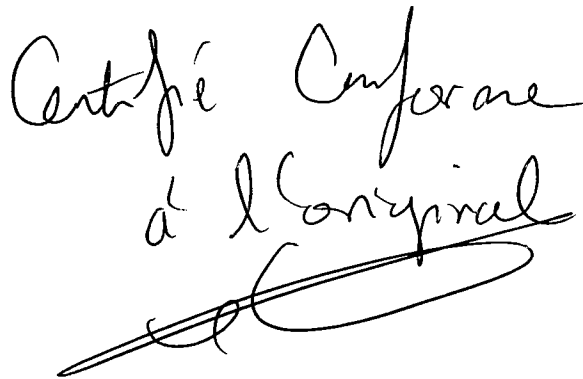 Certifié Conforme
à l'original